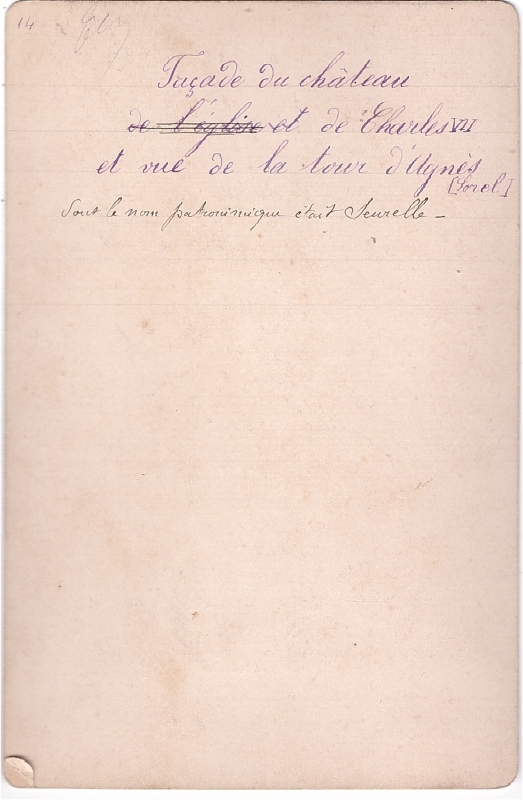 14
Façade du château
de l'église et de Charles VII
et vue de la tour d'Agnès
[Sorel]
dont le nom patronimique était Seurelle –